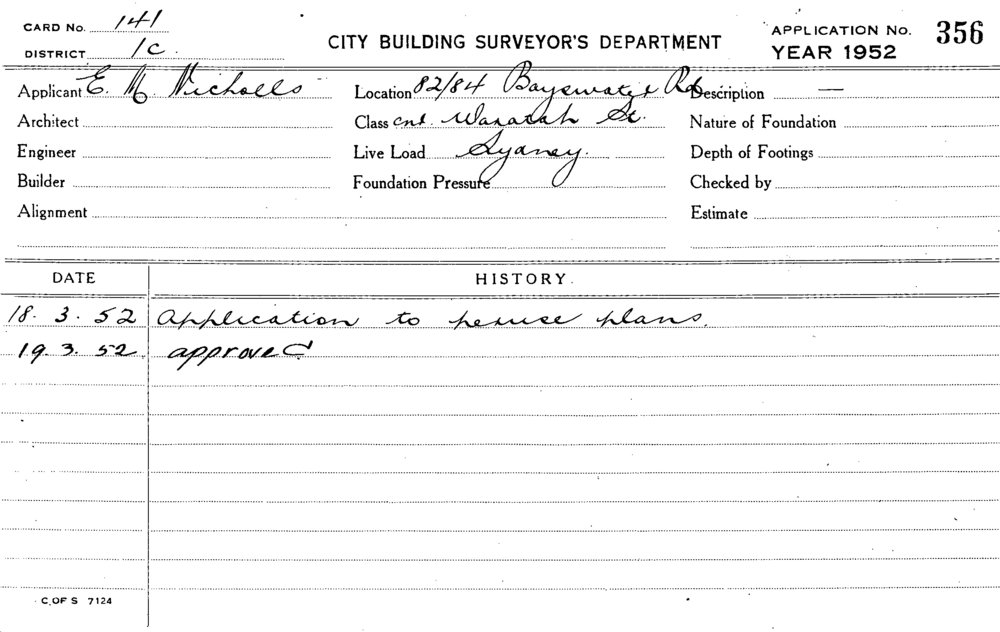 CARD No. 141
DISTRICT 1c.
CITY BUILDING SURVEYOR'S DEPARTMENT
APPLICATION No. 356
YEAR 1952
Applicant E. M. Nicholls
Location 82/84 Bayswater Rd
Description —
Architect
Class cnr. Waratah St.
Nature of Foundation
Engineer
Live Load Sydney.
Depth of Footings
Builder
Foundation Pressure
Checked by
Alignment
Estimate
DATE HISTORY.
18. 3. 52 Application to peruse plans.
19. 3. 52 approved
C. OF S 7124